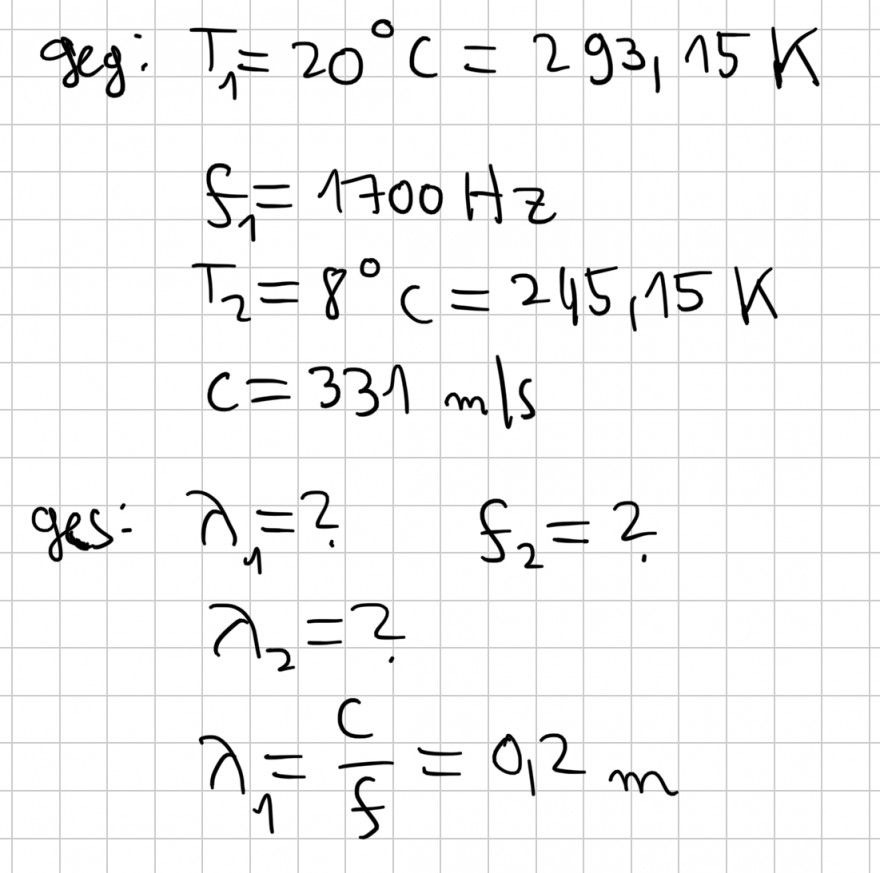 geg: T₁ = 20°C = 293,15 K
f₁ = 1700 Hz
T₂ = 8°C = 245,15 K
c = 331 m/s
ges: λ₁ = ? f₂ = ?
λ₂ = ?
λ₁ = c/f = 0,2 m